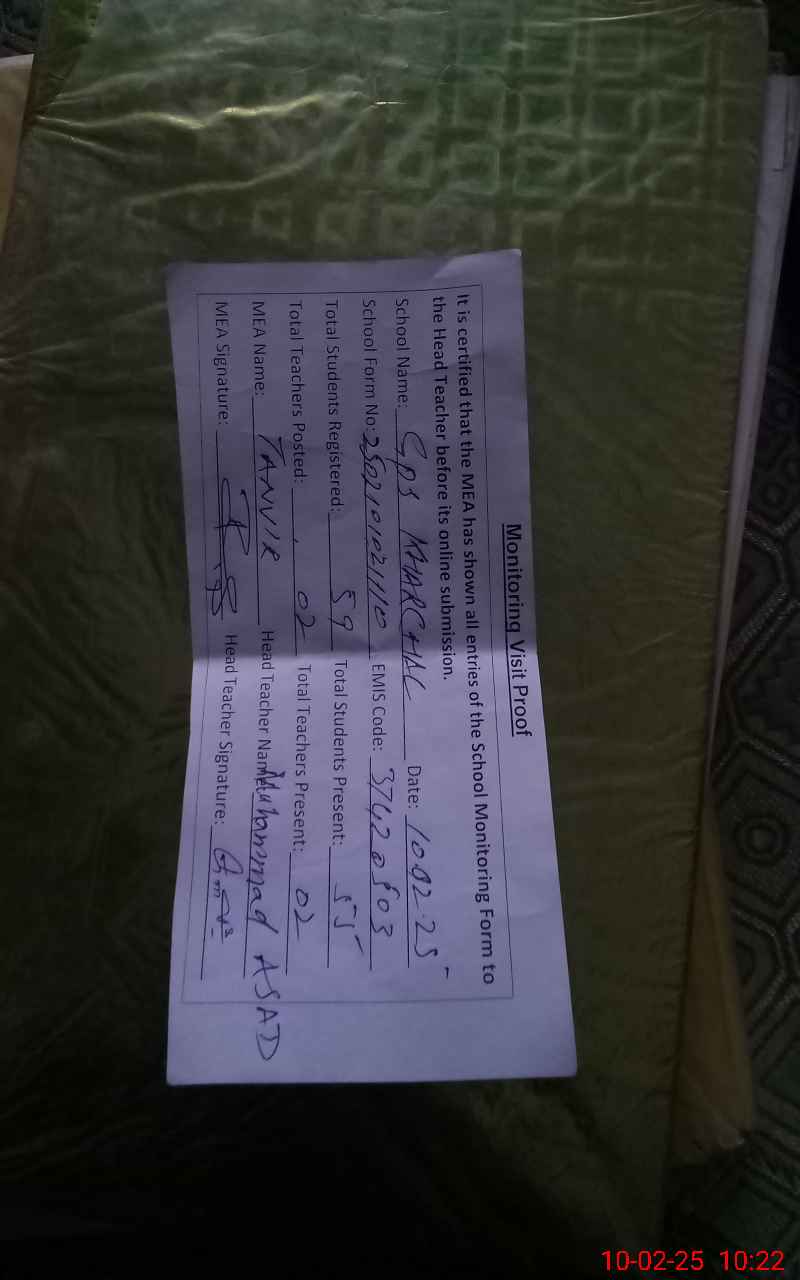 Monitoring Visit Proof
It is certified that the MEA has shown all entries of the School Monitoring Form to
the Head Teacher before its online submission.
School Name: GPS KHARCHAL Date: 10.02.25
School Form No: 2502101021110 EMIS Code: 37420503
Total Students Registered: 59 Total Students Present: 55
Total Teachers Posted: 02 Total Teachers Present: 02
MEA Name: TANVIR Head Teacher Name: Muhammad ASAD
MEA Signature: Head Teacher Signature:
10-02-25 10:22